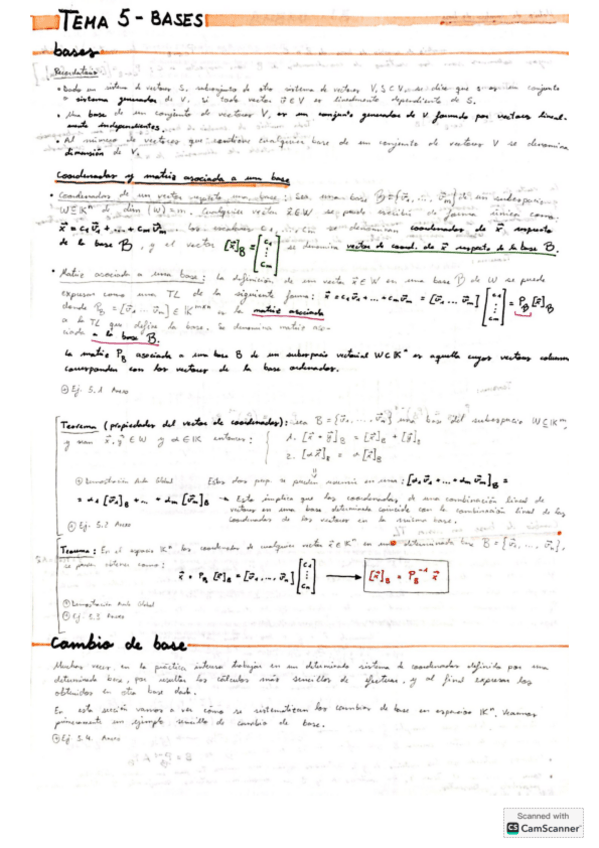 TEMA 5 - BASES
bases
Recordatorio:
• Dado un sistema de vectores S, subconjunto de otro sistema de vectores V, S ⊆ V, se dice que S es un conjunto
o sistema generador de V, si todo vector v⃗ ∈ V es linealmente dependiente de S.
• Una base de un conjunto de vectores V, es un conjunto generador de V formado por vectores lineal-
mente independientes.
• Al número de vectores que contiene cualquier base de un conjunto de vectores V se denomina
dimensión de V.
Coordenadas y matriz asociada a una base
• Coordenadas de un vector respecto una base: Sea una base B = {v⃗₁, ..., v⃗m} de un subespacio
W ⊆ Kⁿ de dim (W) = m. Cualquier vector x⃗ ∈ W se puede escribir de forma única como:
x⃗ = c₁v⃗₁ + ... + cm v⃗m. Los escalares c₁, ..., cm se denominan coordenadas de x⃗ respecto
de la base B, y el vector [x⃗]B = [c₁ ⋮ cm] se denomina vector de coord. de x⃗ respecto de la base B.
• Matriz asociada a una base: La definición de un vector x⃗ ∈ W en una base B de W se puede
expresar como una TL de la siguiente forma: x⃗ = c₁v⃗₁ + ... + cm v⃗m = [v⃗₁ ... v⃗m] [c₁ ⋮ cm] = PB [x⃗]B
donde PB = [v⃗₁ ... v⃗m] ∈ Kⁿˣᵐ es la matriz asociada
a la TL que define la base. Se denomina matriz aso-
ciada a la base B.
La matriz PB asociada a una base B de un subespacio vectorial W ⊆ Kⁿ es aquella cuyos vectores columna
corresponden con los vectores de la base ordenados.
Ej. 5.1 Anexo
Teorema (propiedades del vector de coordenadas): sea B = {v⃗₁, ..., v⃗m} una base del subespacio W ⊆ Kⁿ,
y sean x⃗, y⃗ ∈ W y α ∈ K entonces: { 1. [x⃗ + y⃗]B = [x⃗]B + [y⃗]B
2. [αx⃗]B = α[x⃗]B
Demostración Aula Global Estas dos prop. se pueden resumir en una: [α₁v⃗₁ + ... + αm v⃗m]B =
= α₁[v⃗₁]B + ... + αm[v⃗m]B → Esto implica que las coordenadas de una combinación lineal de
vectores en una base determinada coincide con la combinación lineal de las
coordenadas de los vectores en la misma base.
Ej. 5.2 Anexo
Teorema: En el espacio Kⁿ las coordenadas de cualquier vector x⃗ ∈ Kⁿ en una determinada base B = {v⃗₁, ..., v⃗n},
se puede obtener como:
x⃗ = PB [x⃗]B = [v⃗₁, ..., v⃗n] [c₁ ⋮ cn] → [x⃗]B = PB⁻¹ x⃗
Demostración Aula Global
Ej. 5.3 Anexo
Cambio de base
Muchas veces, en la práctica interesa trabajar en un determinado sistema de coordenadas definido por una
determinada base, por resultar los cálculos más sencillos de efectuar, y al final expresar los
obtenidos en otra base dada.
En esta sección vamos a ver cómo se sistematizan los cambios de base en espacios Kⁿ. Veamos
primeramente un ejemplo sencillo de cambio de base.
Ej 5.4. Anexo
Scanned with
CS CamScanner